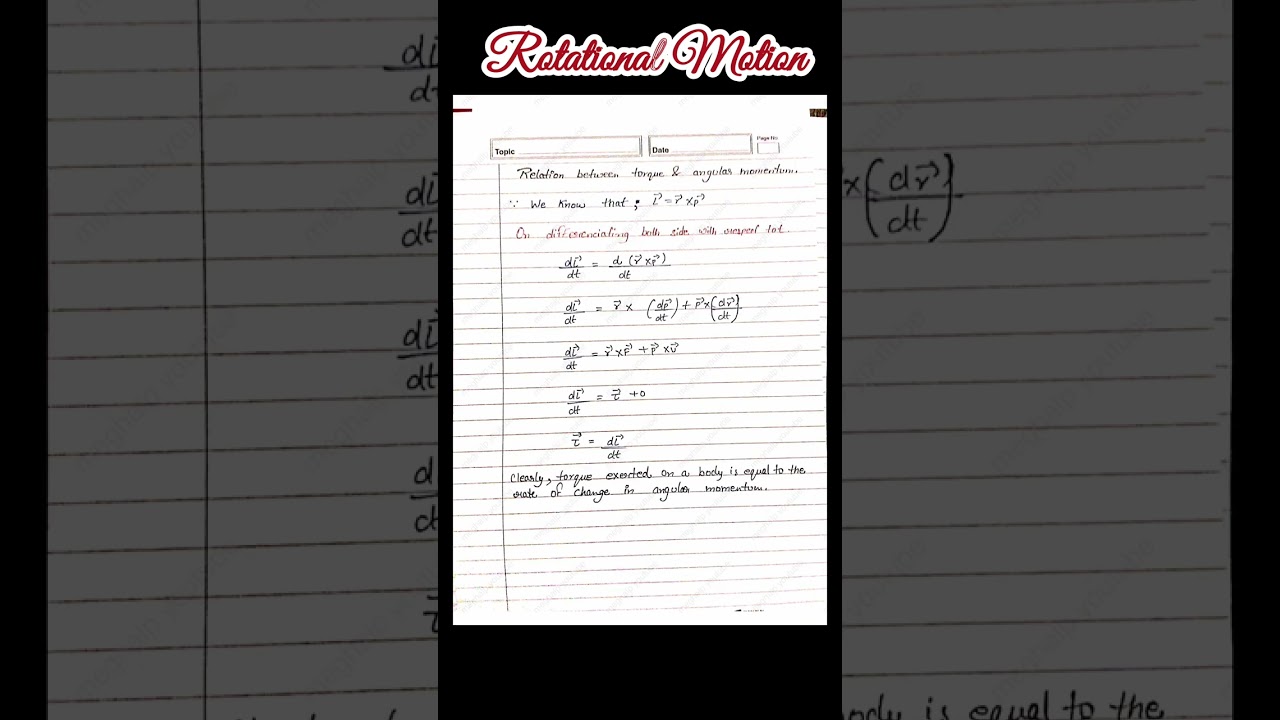 Rotational Motion
Topic
Date
Page No:
Relation between torque & angular momentum.
∵ We know that; L⃗ = r⃗ × p⃗
On differenciating both side with respect to t.
dL⃗/dt = d(r⃗ × p⃗)/dt
dL⃗/dt = r⃗ × (dp⃗/dt) + p⃗ × (dr⃗/dt)
dL⃗/dt = r⃗ × F⃗ + p⃗ × v⃗
dL⃗/dt = τ⃗ + 0
τ⃗ = dL⃗/dt
Clearly, torque exerted on a body is equal to the
rate of change in angular momentum.